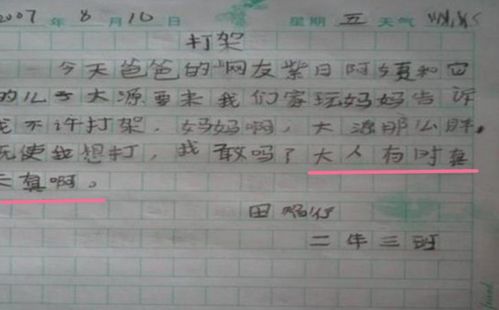 2007年8月10日 星期五 天气
打架
今天爸爸的"网友紫日阿姨和它
的儿子大源要来我们家玩妈妈告诉
我不许打架，妈妈啊，大源那么胖，
既使我想打，我敢吗？大人有时真
天真啊。
田
二年三班